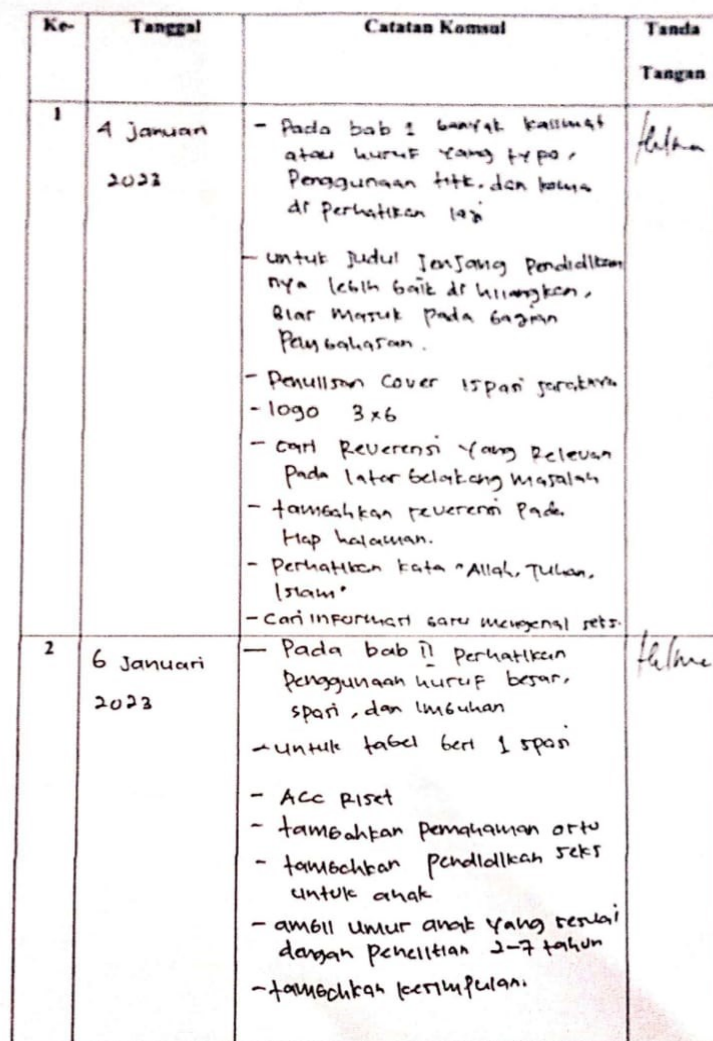 Ke- Tanggal Catatan Komsul Tanda
Tangan
1 4 Januari - Pada bab 1 banyak kalimat
atau huruf yang typo,
2023 Penggunaan titik. dan koma
di perhatikan lagi
- untuk judul Jenjang Pendidikan
nya lebih baik di hilangkan,
Biar masuk pada bagian
Pembahasan.
- Penulisan Cover 1spasi jaraknya
- logo 3x6
- cari Reverensi Yang Relevan
Pada latar belakang masalah
- tambahkan reverensi Pada
tiap halaman.
- Perhatikan kata "Allah, Tuhan,
Islam"
- Cari informasi baru mengenai seks.
2 6 Januari - Pada bab ii perhatikan
2023 Penggunaan huruf besar,
spasi, dan imbuhan
- untuk tabel beri 1 spasi
- ACC Riset
- tambahkan pemahaman ortu
- tambahkan pendidikan seks
untuk anak
- ambil umur anak yang sesuai
dengan penelitian 2-7 tahun
- tambahkan kesimpulan.